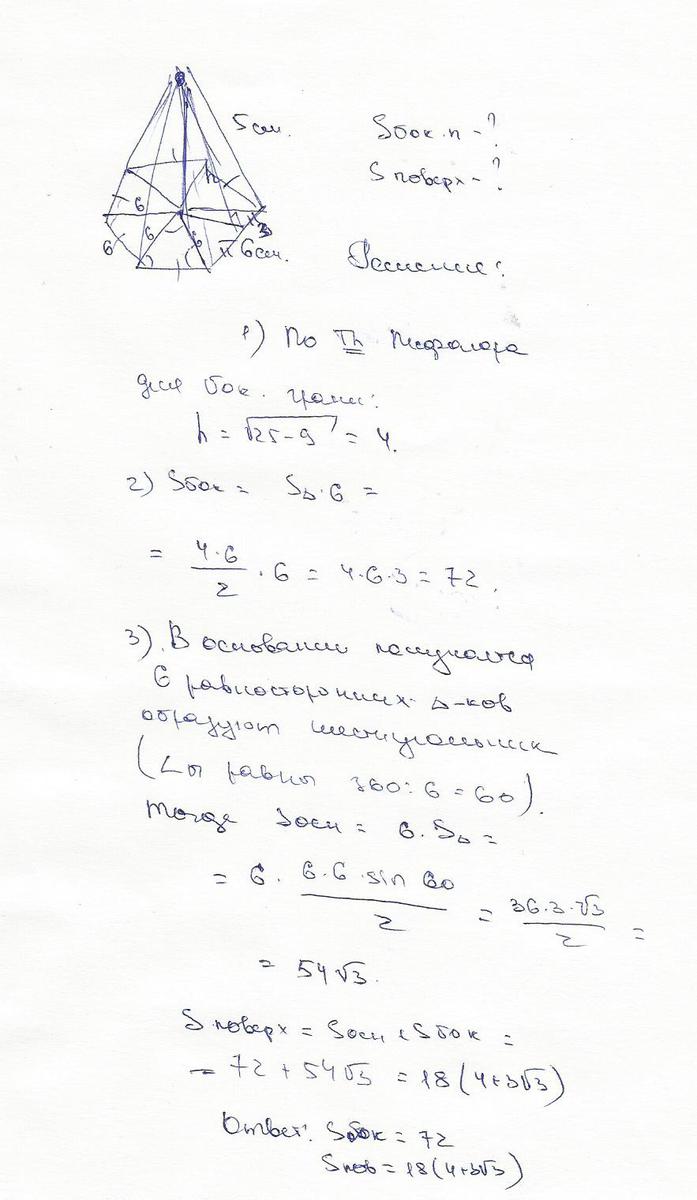 5 см.
Sбок.п - ?
S поверх - ?
h
6
6
6
6
3
6 см.
Решение:
1) По Th Пифагора
для бок. грани:
h = √25-9 = 4.
2) Sбок = S△·6 =
= 4·6/2 · 6 = 4·6·3 = 72.
3). В основании
6 равносторонних △-ков
образуют шестиугольник
(∠ы равны 360:6=60).
Тогда Sосн = 6·S△ =
= 6 · 6·6·sin 60/2 = 36·3·√3/2 =
= 54√3.
S поверх = Sосн + Sбок =
= 72 + 54√3 = 18(4+3√3)
Ответ: Sбок = 72
Sпов = 18(4+3√3)